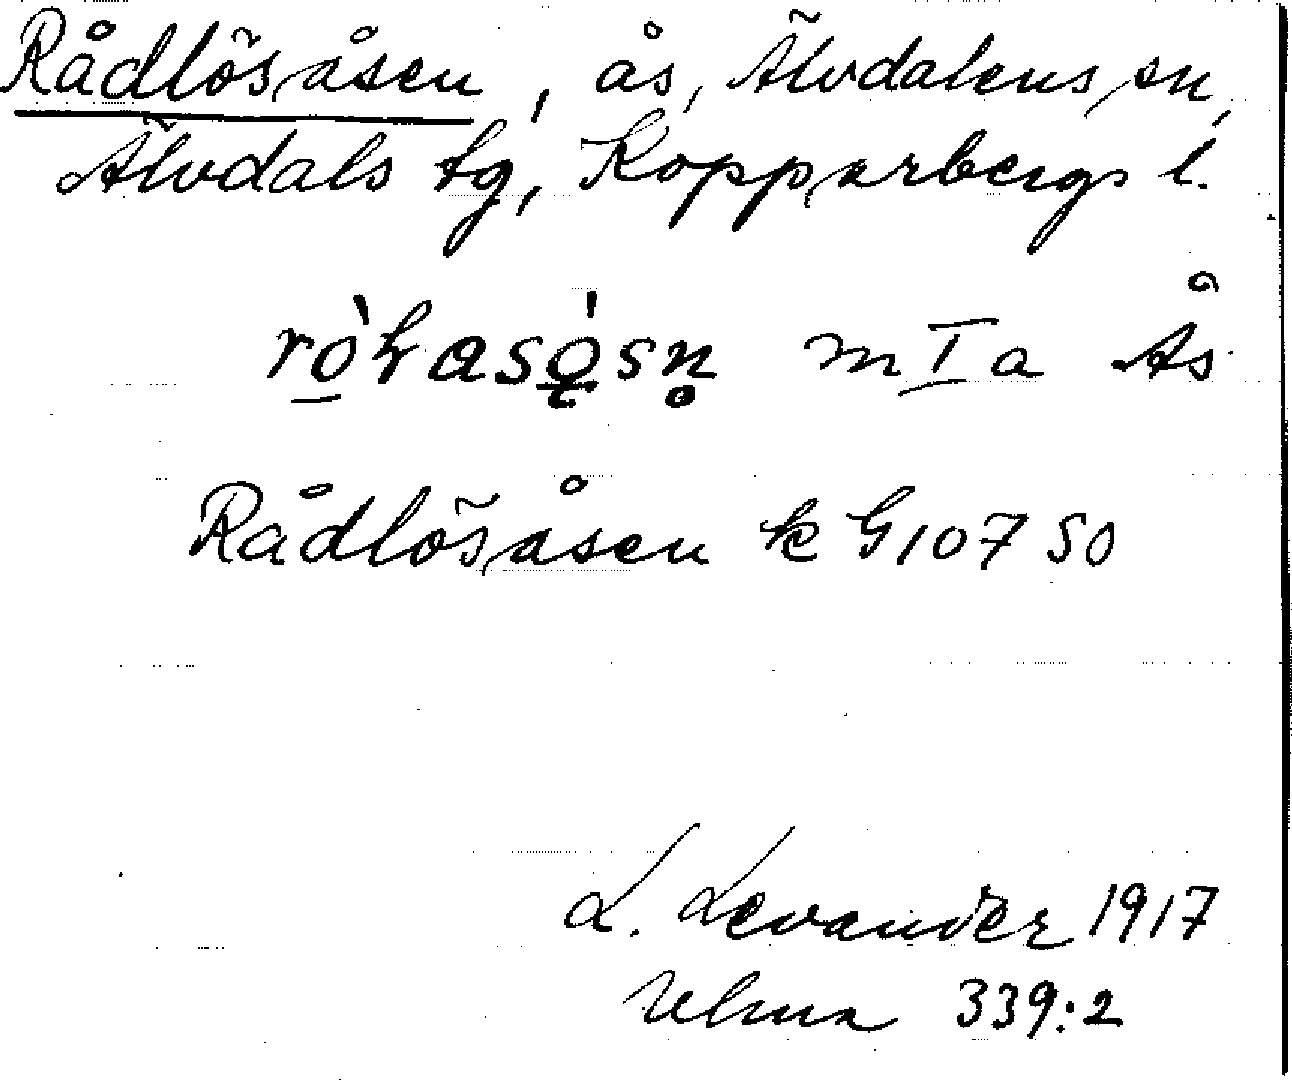 Rådlösåsen, ås, Älvdalens sn,
Älvdals tg, Kopparbergs l.
m I a Ås
Rådlösåsen k G 107 SO
L. Levander 1917
Ulma 339:2